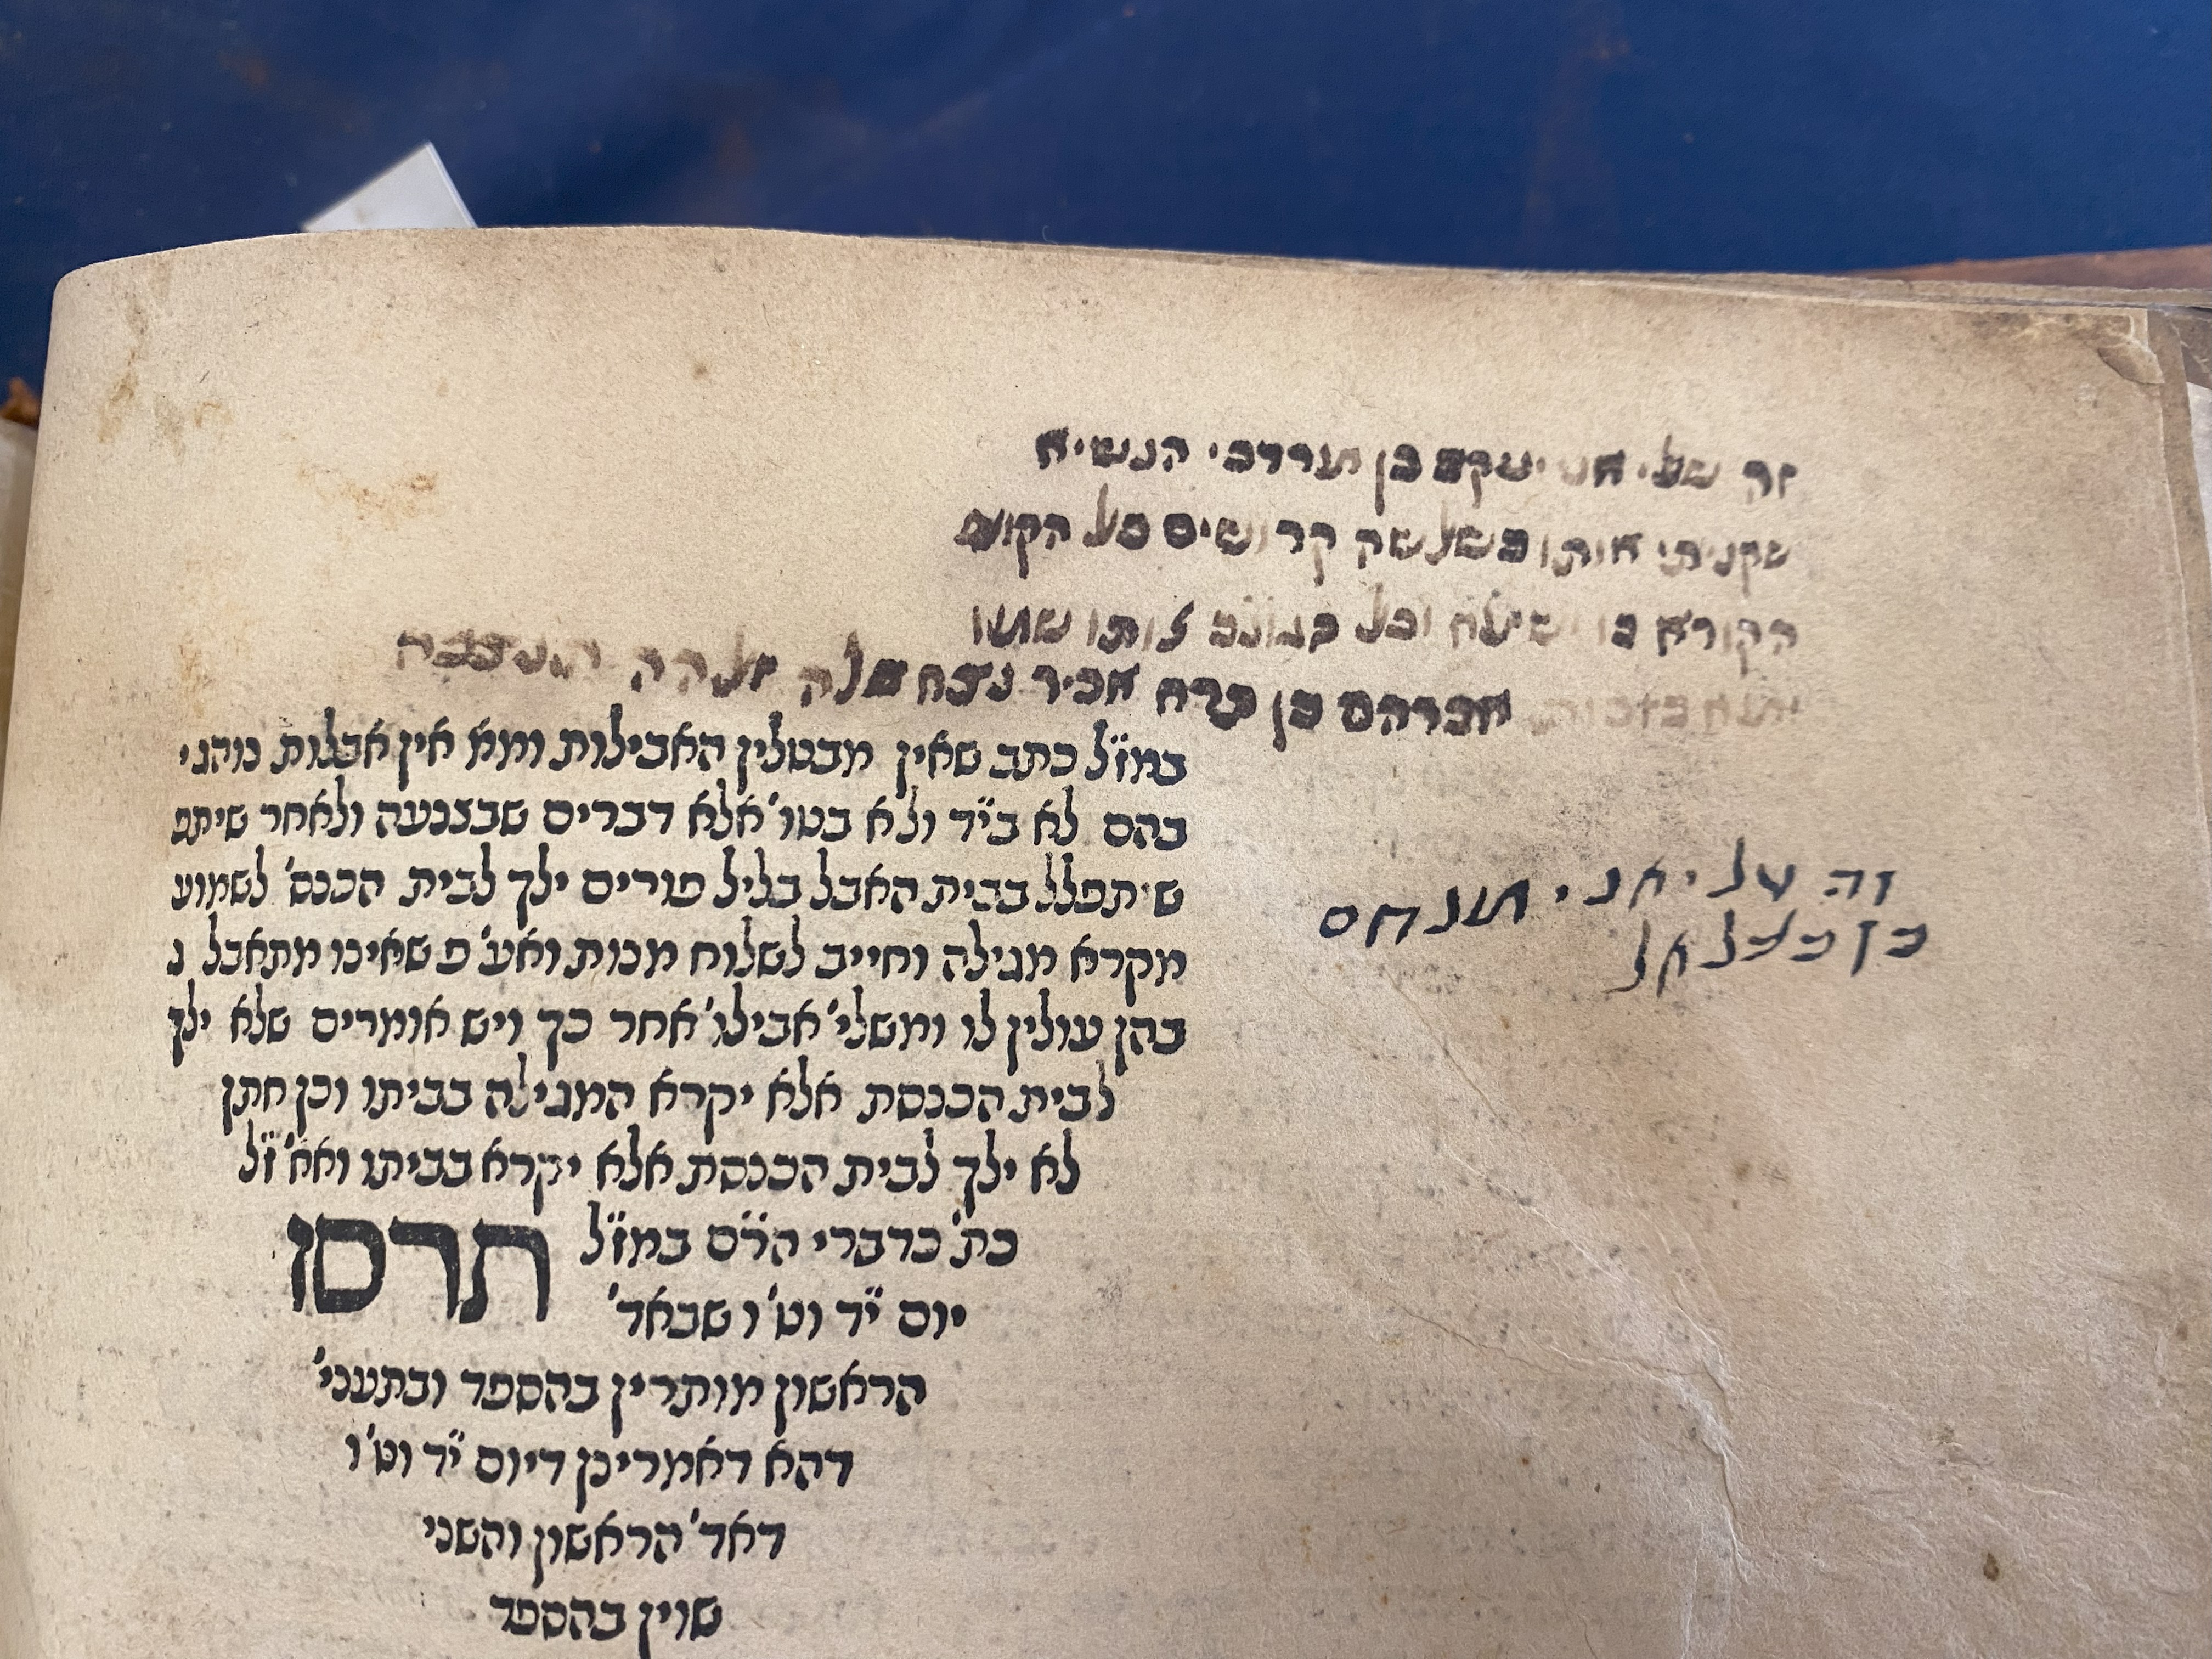 זה שלי אני יעקב בן מרדכי הנשיא
שקניתי אותו בשלשה קרושים כל הקונה
הקורא בו ישילם וכל הגונב אותו שמו
אברהם בן פרח אכיר נצח סלה
במז״ל כתב שאין מבטלין האבילות ומא אין אבלות נוהגי
בהם לא בי״ד ולא בטו' אלא דברים שבצנעה ולאחר שיתפ
שיתפלל בבית האבל בליל פורים ילך לבית הכנס' לשמוע
מקרא מגילה וחייב לשלוח מנות ואע'פ שאינו מתאבל נ
בהן עולין לו ומשלי' אבילו' אחר כך ויש אומרים שלא ילך
לבית הכנסת אלא יקרא המגילה בביתו וכן חתן
לא ילך לבית הכנסת אלא יקרא בביתו ואא'ז״ל
כת' כדברי הר״ם במז״ל תרסן
יום י״ד וט'ו שבאד'
הראשון מותרין בהספד ובתעני'
דהא דאמרינן דיום י״ד וט'ו
דאד' הראשון והשני
שוין בהספד
זה שלי אני מנחם
בן בצלאל